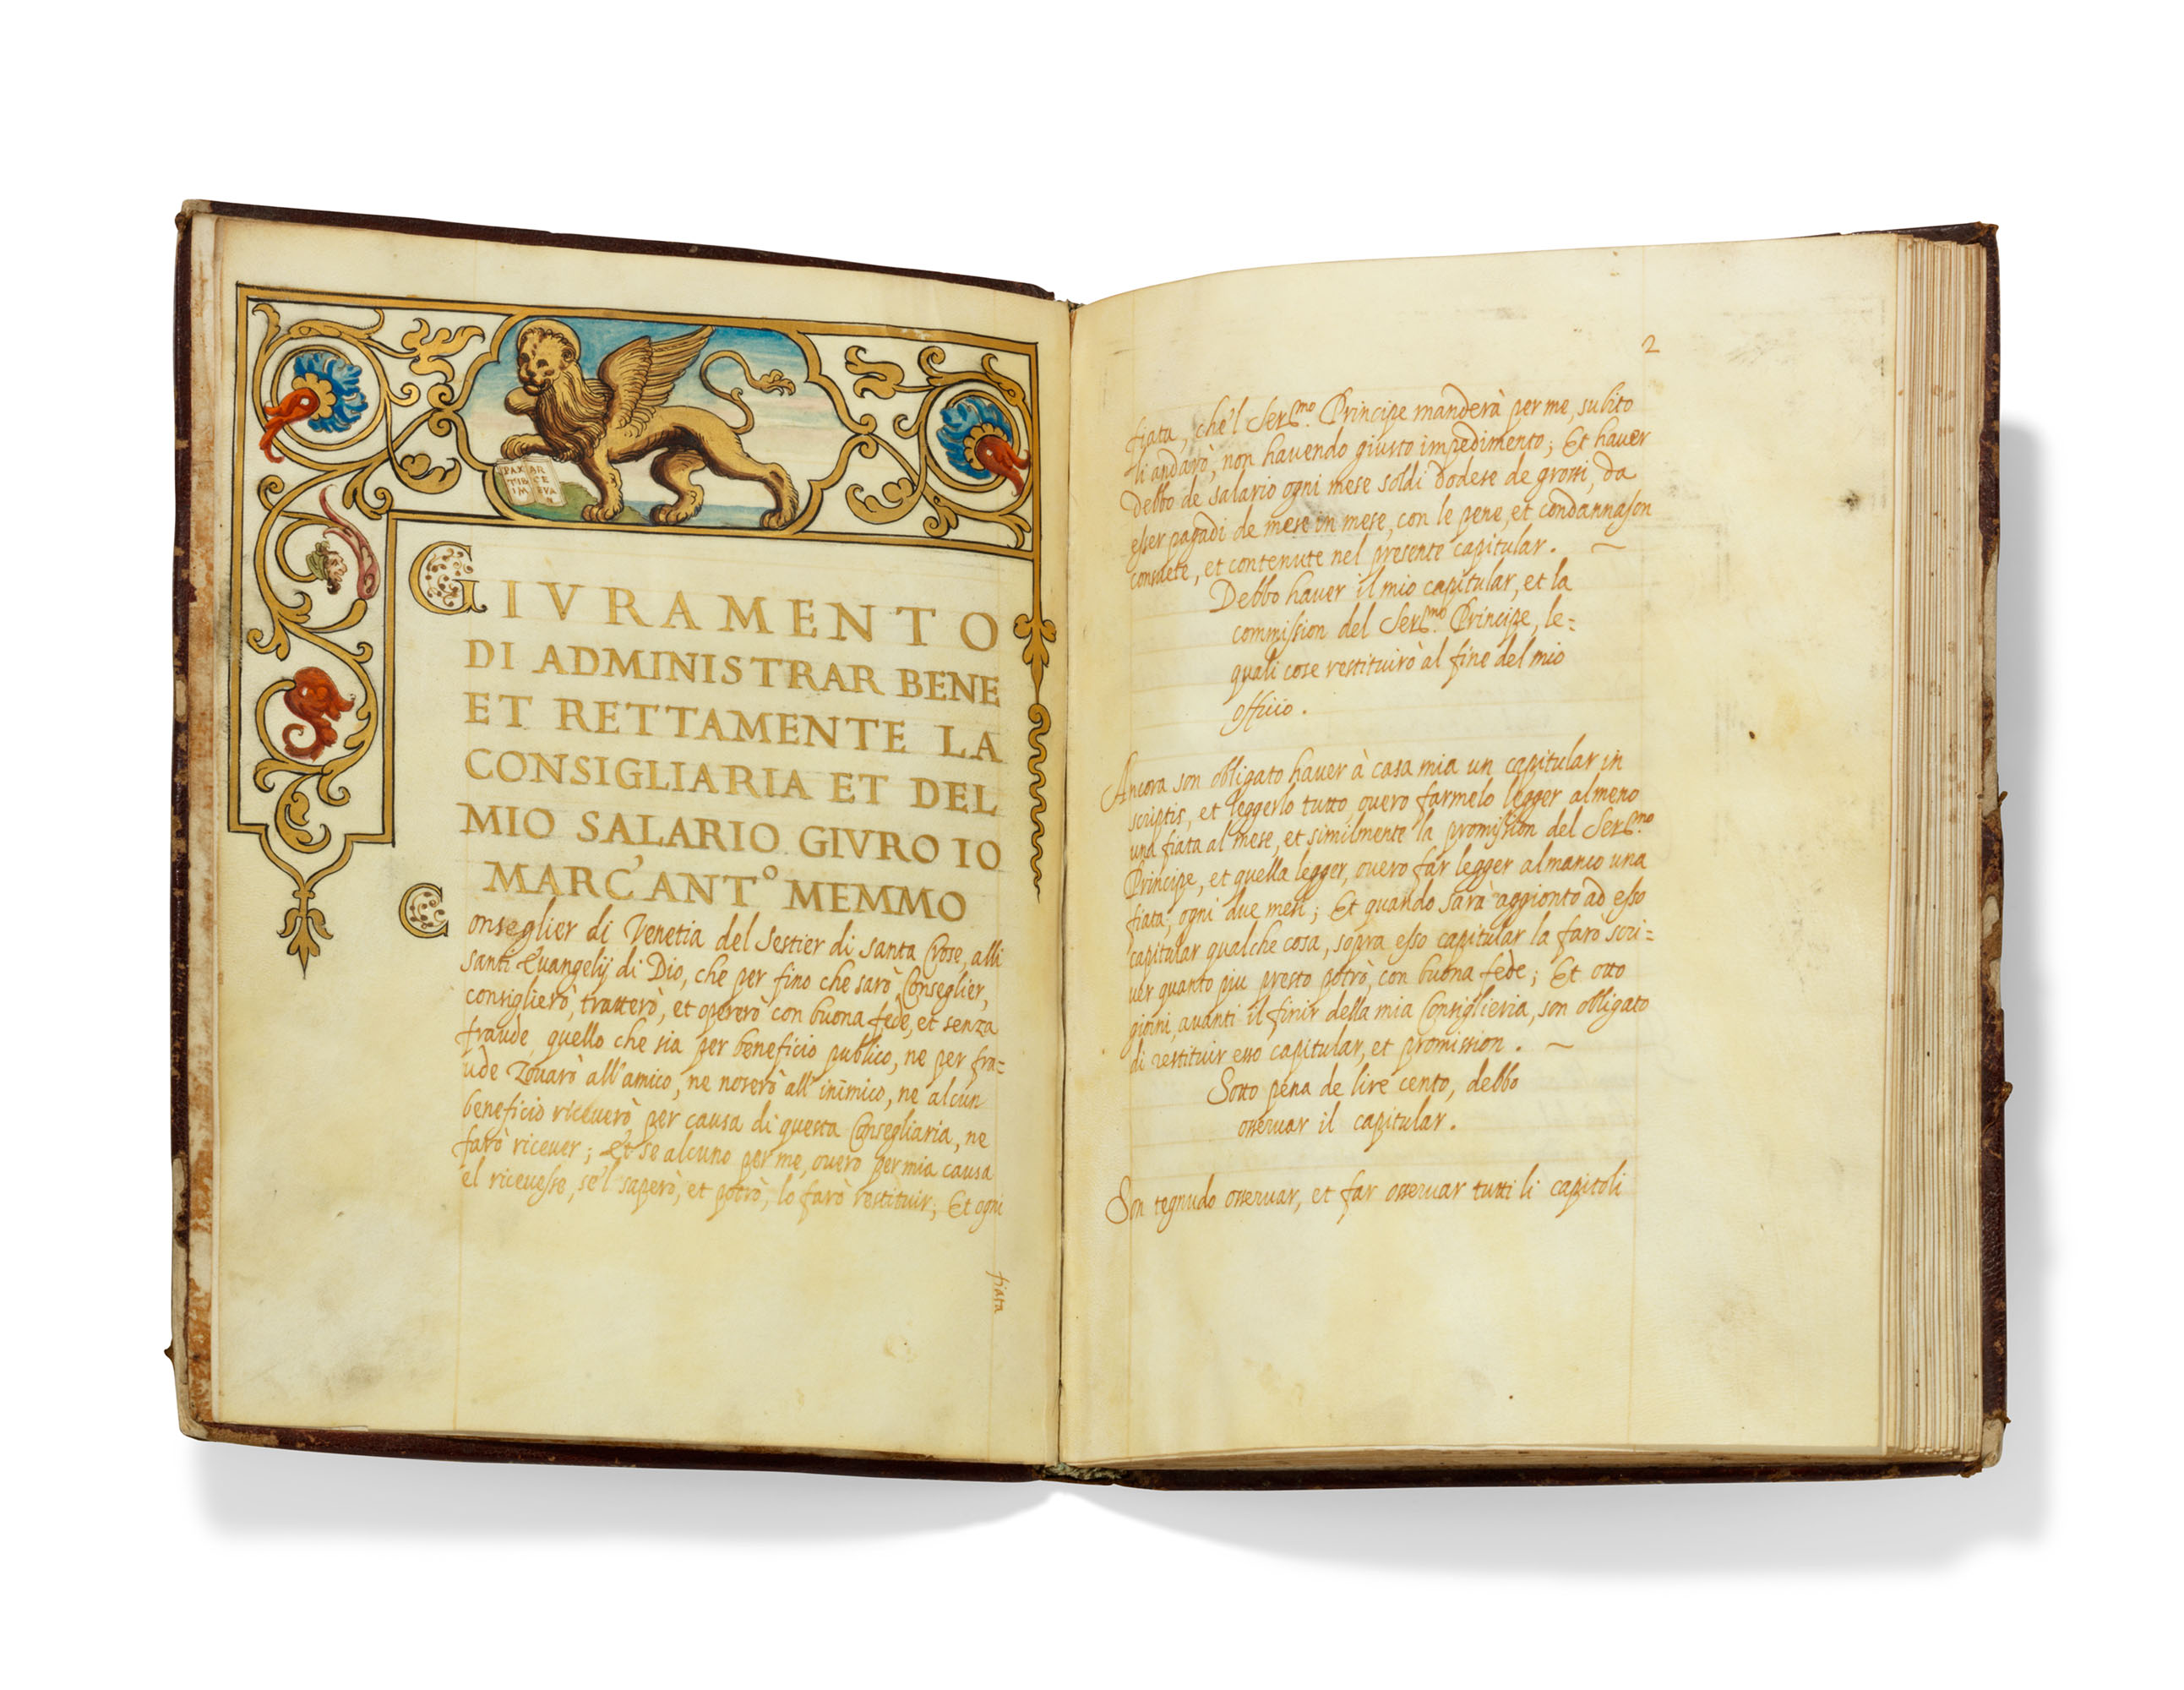 PAX AR
TIB CE
IM EVA
GIVRAMENTO
DI ADMINISTRAR BENE
ET RETTAMENTE LA
CONSIGLIARIA ET DEL
MIO SALARIO GIVRO IO
MARC'ANTº MEMMO
Conseglier di Venetia del Sestier di Santa Crose, alli
Santi Euangelij di Dio, che per fino che sarò Conseglier,
consiglierò, tratterò, et opererò con buona fede, et senza
fraude quello che sia per beneficio publico, ne per fra=
ude Zouarò all'amico, ne noserò all' inimico, ne alcun
beneficio riceuerò per causa di questa Consegliaria, ne
farò riceuer; Et se alcuno per me, ouero per mia causa
el riceuesse, se'l saperò, et potrò, lo farò restituir; Et ogni
fiata
2
fiata, che'l Serᵐᵒ. Principe manderà per me, subito
li andarò, non hauendo giusto impedimento; Et hauer
Debbo de salario ogni mese soldi dodese de grossi, da
esser pagadi de mese in mese, con le pene, et condannason
consuete, et contenute nel presente capitular.
Debbo hauer il mio capitular, et la
commission del Serᵐᵒ. Principe, le=
quali cose restituirò al fine del mio
officio.
Ancora son obligato hauer à casa mia un capitular in
scriptis, et leggerlo tutto, ouero farmelo legger almeno
una fiata al mese, et similmente la promission del Serᵐᵒ.
Principe, et quella legger, ouero far legger almanco una
fiata, ogni due mesi; Et quando sarà aggionto ad esso
capitular qualche cosa, sopra esso capitular la farò scri=
uer quanto piu presto potrò, con buona fede; Et otto
giorni auanti il finir della mia Consiglieria, son obligato
di restituir esso capitular, et promission.
Sotto pena de lire cento, debbo
osseruar il capitular.
Son tegnudo osseruar, et far osseruar tutti li capitoli